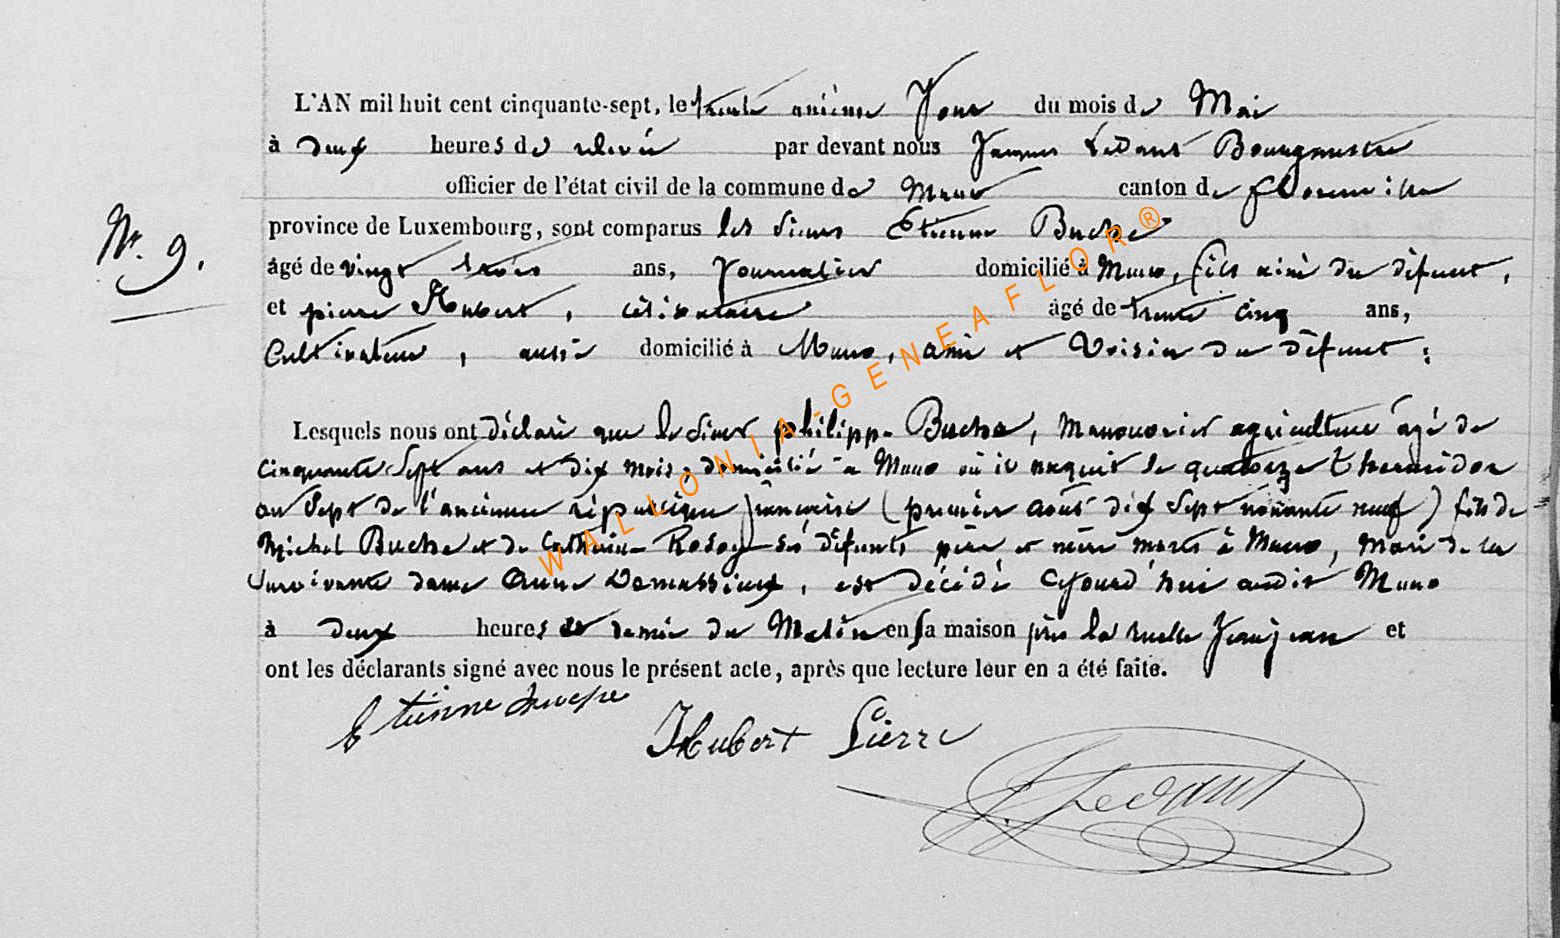 L'AN mil huit cent cinquante-sept, le trente unième Jour du mois de Mai
à deux heures de relevée par devant nous Jacques Ledant Bourgmestre
officier de l'état civil de la commune de Muno canton de Florenville
province de Luxembourg, sont comparus les Sieurs Etienne Buche
Nr. 9.
âgé de vingt trois ans, Journalier domicilié à Muno, fils ainé du défunt,
et pierre Hubert, célibataire âgé de trente cinq ans,
Cultivateur, aussi domicilié à Muno, ami et Voisin du défunt;
Lesquels nous ont déclaré que le Sieur philippe Buche, Manouvrier agriculteur âgé de
Cinquante Sept ans et dix mois, domicilié à Muno où il naquit le quatorze thermidor
an Sept de l'ancienne république française (premier août dix Sept nonante neuf) fils de
Michel Buche et de Catherine Rosoy ses défunts père et mère morts à Muno, Mari de la
Survivante dame Anne Damassieux, est décédé Cejourd'hui audit Muno
à deux heures et demie du Matin en sa maison près la ruelle Jeanjean et
ont les déclarants signé avec nous le présent acte, après que lecture leur en a été faite.
Etienne Buche
Hubert Pierre
J. Ledant
WALLONIA-GENEAFLOR®